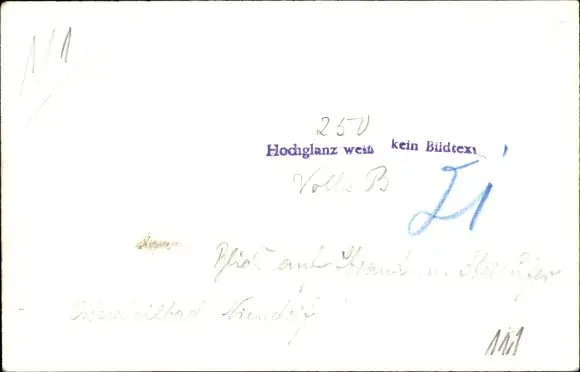 1/1
250
Hochglanz weiß kein Bildtext
Volls B
Li
Blick auf Strand u. Steilufer
Ostseeheilbad Niendorf
111